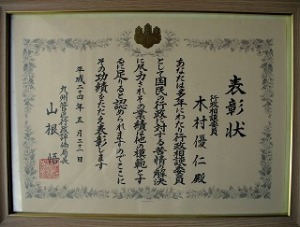 表彰状
行政相談委員
木村優仁殿
あなたは多年にわたり行政相談委員
として国民の行政に対する苦情の解決
に尽力されその業績は他の模範とす
るに足りると認められますのでここに
その功績をたたえ表彰します
平成二十四年五月二十二日
九州管区行政評価局長
山根悟